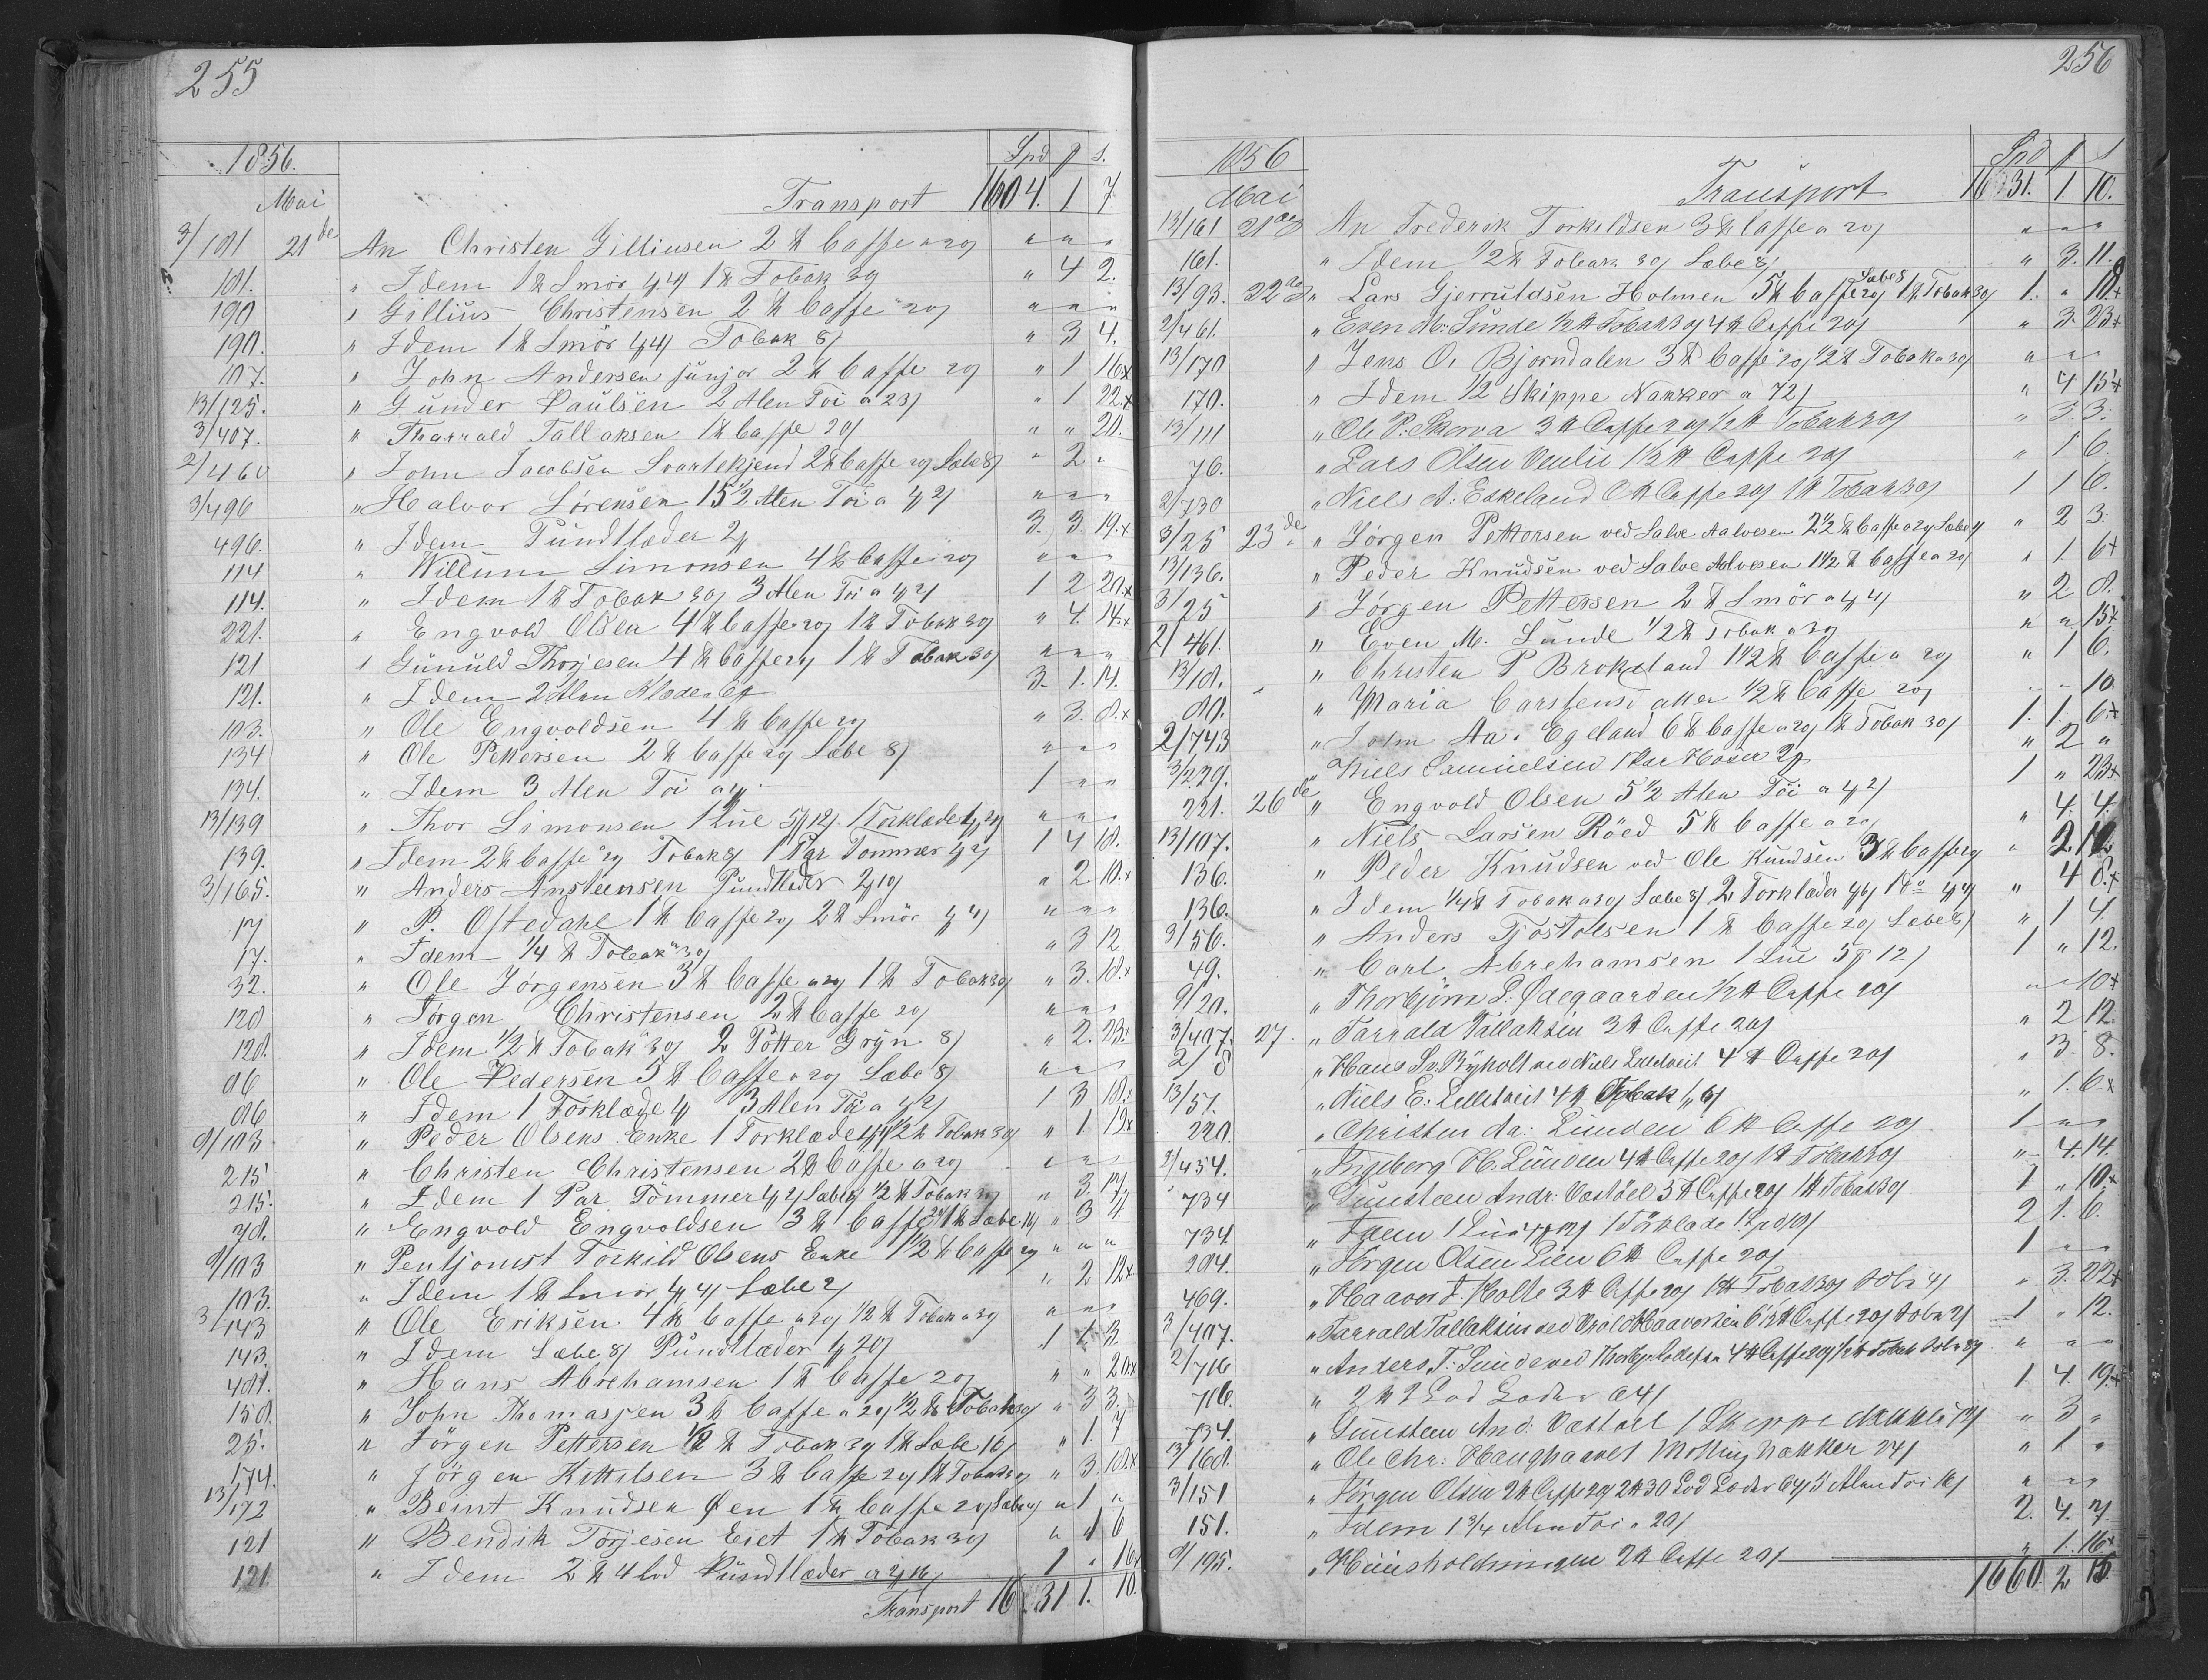 255
1856. Spd ₰ s.
Mai Transport 1604. 1 7.
3/181 21de An Christen Gilliusen 2 ℔ Caffe a 20/ " " "
181. " Idem 1 ℔ Smör 1/4/ 1 ℔ Tobak 30/ " 4 2.
190 " Gillius Christensen 2 ℔ Caffe 20/ " " "
190. " Idem 1 ℔ Smör 1/4/ Tobak 8/ " 3 4.
107. " John Andersen junjor 2 ℔ Caffe 20/ " 1 16x
13/125. " Gunder Paulsen 2 Alen Töi a 23/ " 1 22x
3/407. " Tharrald Tallaksen 1 ℔ Caffe 20/ " " 20.
2/460 " John Jacobsen Svartekjend 2 ℔ Caffe 20/ Sæbe 8/ " 2 "
3/496 " Halvor Sörensen 15 1/2 Alen Töi a 1/2/ " " "
496. " Idem Pundlæder 2/ 3. 3. 19.x
114 " Willum Simonsen 4 ℔ Caffe 20/ " " "
114. " Idem 1 ℔ Tobak 30/ 3 Alen Töi a 1/2/ 1 2 20.x
221. " Engvold Olsen 4 ℔ Caffe 20/ 1 ℔ Tobak 30/ " 4. 14.x
121 " Gunuld Thorjesen 4 ℔ Caffe 20/ 1 ℔ Tobak 30/ " " "
121. " Idem 2 Alen Klæde a 3. 1. 14.
103. " Ole Engvoldsen 4 ℔ Caffe 20/ " 3. 8.x
134 " Ole Pettersen 2 ℔ Caffe 20/ Sæbe 8/ " " "
134. " Idem 3 Alen Töi a 1 " "
13/139 " Thor Simonsen 1 Lue 5/12/ 1 Törklæde 4/20/ " " "
139. " Idem 2 ℔ Caffe 20/ Tobak 8/ 1 Par Tömmer 1/2/ 1 4 18.
3/165. " Anders Ansteensen Pundlæder 2/10/ " 2. 10.x
17 " P. Ostedahl 1 ℔ Caffe 20/ 2 ℔ Smör 1/4/ " " "
17. " Idem 1/4 ℔ Tobak 30/ " 3 12
32. " Ole Jörgensen 3 ℔ Caffe a 20/ 1 ℔ Tobak 30/ " 3. 18.x
128 " Jörgen Christensen 2 ℔ Caffe 20/ " " "
128. " Idem 1/2 ℔ Tobak 30/ 2 Potter Gryn 8/ " 2. 23.x
86 " Ole Pedersen 5 ℔ Caffe a 20/ Sæbe 8/ " " "
86 " Idem 1 Törklæde 4/ 3 Alen Töi a 1/2/ 1 3 18.x
9/103 " Peder Olsens Enke 1 Törklæde 1/2 ℔ Tobak 30/ " 1 19x
215 " Christen Christensen 2 ℔ Caffe a 20/ " " "
215. " Idem 1 Par Tömmer 1/2/ Sæbe 8/ 1/2 ℔ Tobak 30/ " 3. 17
78. " Engvold Engvoldsen 3 ℔ Caffe 20/ 1 ℔ Sæbe 16/ " 3 4
9/103 " Pentjonist Torkild Olsens Enke 1 1/2 ℔ Caffe 20/ " " "
103. " Idem 1 ℔ Smör 1/4/ Sæbe 2/ " 2 12x
3/143 " Ole Eriksen 4 ℔ Caffe a 20/ 1/2 ℔ Tobak a 30/ " " "
143. " Idem Sæbe 8/ Pundlæder 1/20/ 1 1. 3.
481. " Hans Abrehamsen 1 ℔ Caffe 20/ " " 20x
158. " John Thomassen 3 ℔ Caffe a 20/ 1/2 ℔ Tobak 30/ " 3 3.
25. " Jörgen Pettersen 1/2 ℔ Tobak 30/ 1 ℔ Sæbe 16/ " 1. 7
174. " Jörgen Kittilsen 3 ℔ Caffe 20/ 1 ℔ Tobak 30/ " 3. 18x
13/172 " Bernt Knudsen Öen 1 ℔ Caffe 20/ Sæbe 4/ " 1 "
121 " Bendik Torjesen Eiet 1 ℔ Tobak 30/ " 1 6
121. " Idem 2 ℔ 4 lod Pundlæder a 2/16/ 1 " 16x
Transport 1631 1. 10.
256
1856 Spd ₰ s
Mai Transport 1631. 1. 10.
13/161 21de An Frederik Torkildsen 3 ℔ Caffe a 20/ " " "
161. " Idem 1/2 ℔ Tobak 30/ Sæbe 8/ " 3. 11.
13/93. 22de " Lars Gjerruldsen Holmen 5 ℔ Caffe 20/ Sæbe 8 1 ℔ Tobak 30/ 1. " 18x
2/461. " Even M. Sunde 1/2 ℔ Tobak 30/ 4 ℔ Caffe 20/ " 3. 23x
13/170 " Jens O. Bjorndalen 3 ℔ Caffe 20/ 1/2 ℔ Tobak a 30/ " " "
170. " Idem 1/2 Skippe Nakker a 72/ " 4 15x
13/111 " Ole P. Skorva 3 ℔ Caffe 20/ 1/2 ℔ Tobak 30/ " 3. 3.
76. " Lars Olsen Veulie 1 1/2 ℔ Caffe 20/ " 1 6.
2/730 " Niels A. Eskeland 6 ℔ Caffe 20/ 1 ℔ Tobak 30/ 1 1 6.
3/25 23de " Jörgen Pettersen ved Salve Aalvesen 2 1/2 ℔ Caffe a 20/ Sæbe 4/ " 2 3.
13/136. " Peder Knudsen ved Salve Alvesen 1 1/2 ℔ Caffe a 20/ " 1 6x
3/25 " Jörgen Pettersen 2 ℔ Smör a 1/4/ " 2 8.
2/461. " Even M. Sunde 1/2 ℔ Tobak a 30 " " 15x
13/18. " Christen P Brokeland 1 1/2 ℔ Caffe a 20/ " 1 6.
80. " Maria Carstensdatter 1/2 ℔ Caffe 20/ " " 10
2/743 " John Aa. Egeland 6 ℔ Caffe a 20/ 1 ℔ Tobak 30/ 1. 1. 6x
3/239. " Niels Samuelsen 1 Par Hoser 2/ " 2 "
221. 26de " Engvold Olsen 5 1/2 Alen Töi a 1/2/ 1 " 23x
13/107. " Niels Larsen Röed 5 ℔ Caffe a 20/ " 4. 4.
136. " Peder Knudsen ved Ole Knudsen 3 ℔ Caffe 20/ " 2 12
136. " Idem 1/4 ℔ Tobak a 30/ Sæbe 8/ 2 Torklæder 1/6/ 1 do 1/4/ " 4 8.x
9/56. " Anders Tjöstolsen 1 ℔ Caffe 20/ Sæbe 8/ " 1 4.
49. " Carl Abrehamsen 1 Lue 5₰ 12/ 1 " 12.
9/20. " Thorbjörn S. Ödegaarden 1/2 ℔ Caffe 20/ " " 10x
3/407. 27. " Tarrald Tallaksen 3 ℔ Caffe 20/ " 2 12.
2/8 " Hans S. Ryholt ved Niels Lilletveit 4 ℔ Caffe 20/ " 3. 8.
13/57. " Niels E. Lilletveit 4 ℔ Tobak " 1. 6x
220. " Christen Aa. Lunden 6 ℔ Caffe 20/ 1 " "
9/454. " Ingeborg H. Lunden 4 ℔ Caffe 20/ 1 ℔ Tobak 30/ " 4. 14.
734 " Gunsteen Andr. Vestöel 5 ℔ Caffe 20/ 1 ℔ Tobak 30/ 1 " 10x
734. " Idem 1 Lue 1 Törklæde 2 1. 6.
204. " Jörgen Olsen Lien 6 ℔ Caffe 20/ 1 " "
469. " Haavor J. Holte 3 ℔ Caffe 20/ 1 ℔ Tobak 30/ Sæbe 4/ " 3. 22x
3/407. " Tarrald Tallaksen ved Haavorsen 6 1/2 ℔ Caffe 20/ Sæbe 2/ 1 " 12.
2/716 " Anders T. Sunde ved 4 ℔ Caffe 20/ 1/2 ℔ Tobak " " "
716. " 2 ℔ 2 Lod Læder 64/ 1 4. 19.x
734. " Gunsteen And. Vestöel 1 Skeppe Nakker 72/ " 3 "
13/168. " Ole Chr. Haughaavet Nakker 24/ " 1 "
3/151 " Jörgen Olsen 2 ℔ Caffe 20/ 2 ℔ 30 Lod Læder 64/ 5 Alen Toi 16/ " " "
151. " Idem 1 3/4 Alen Toi a 20/ 2. 4. 7.
9/195. " Huusholdningen 2 ℔ Caffe 20/ " 1. 16x
1660. 2 15.